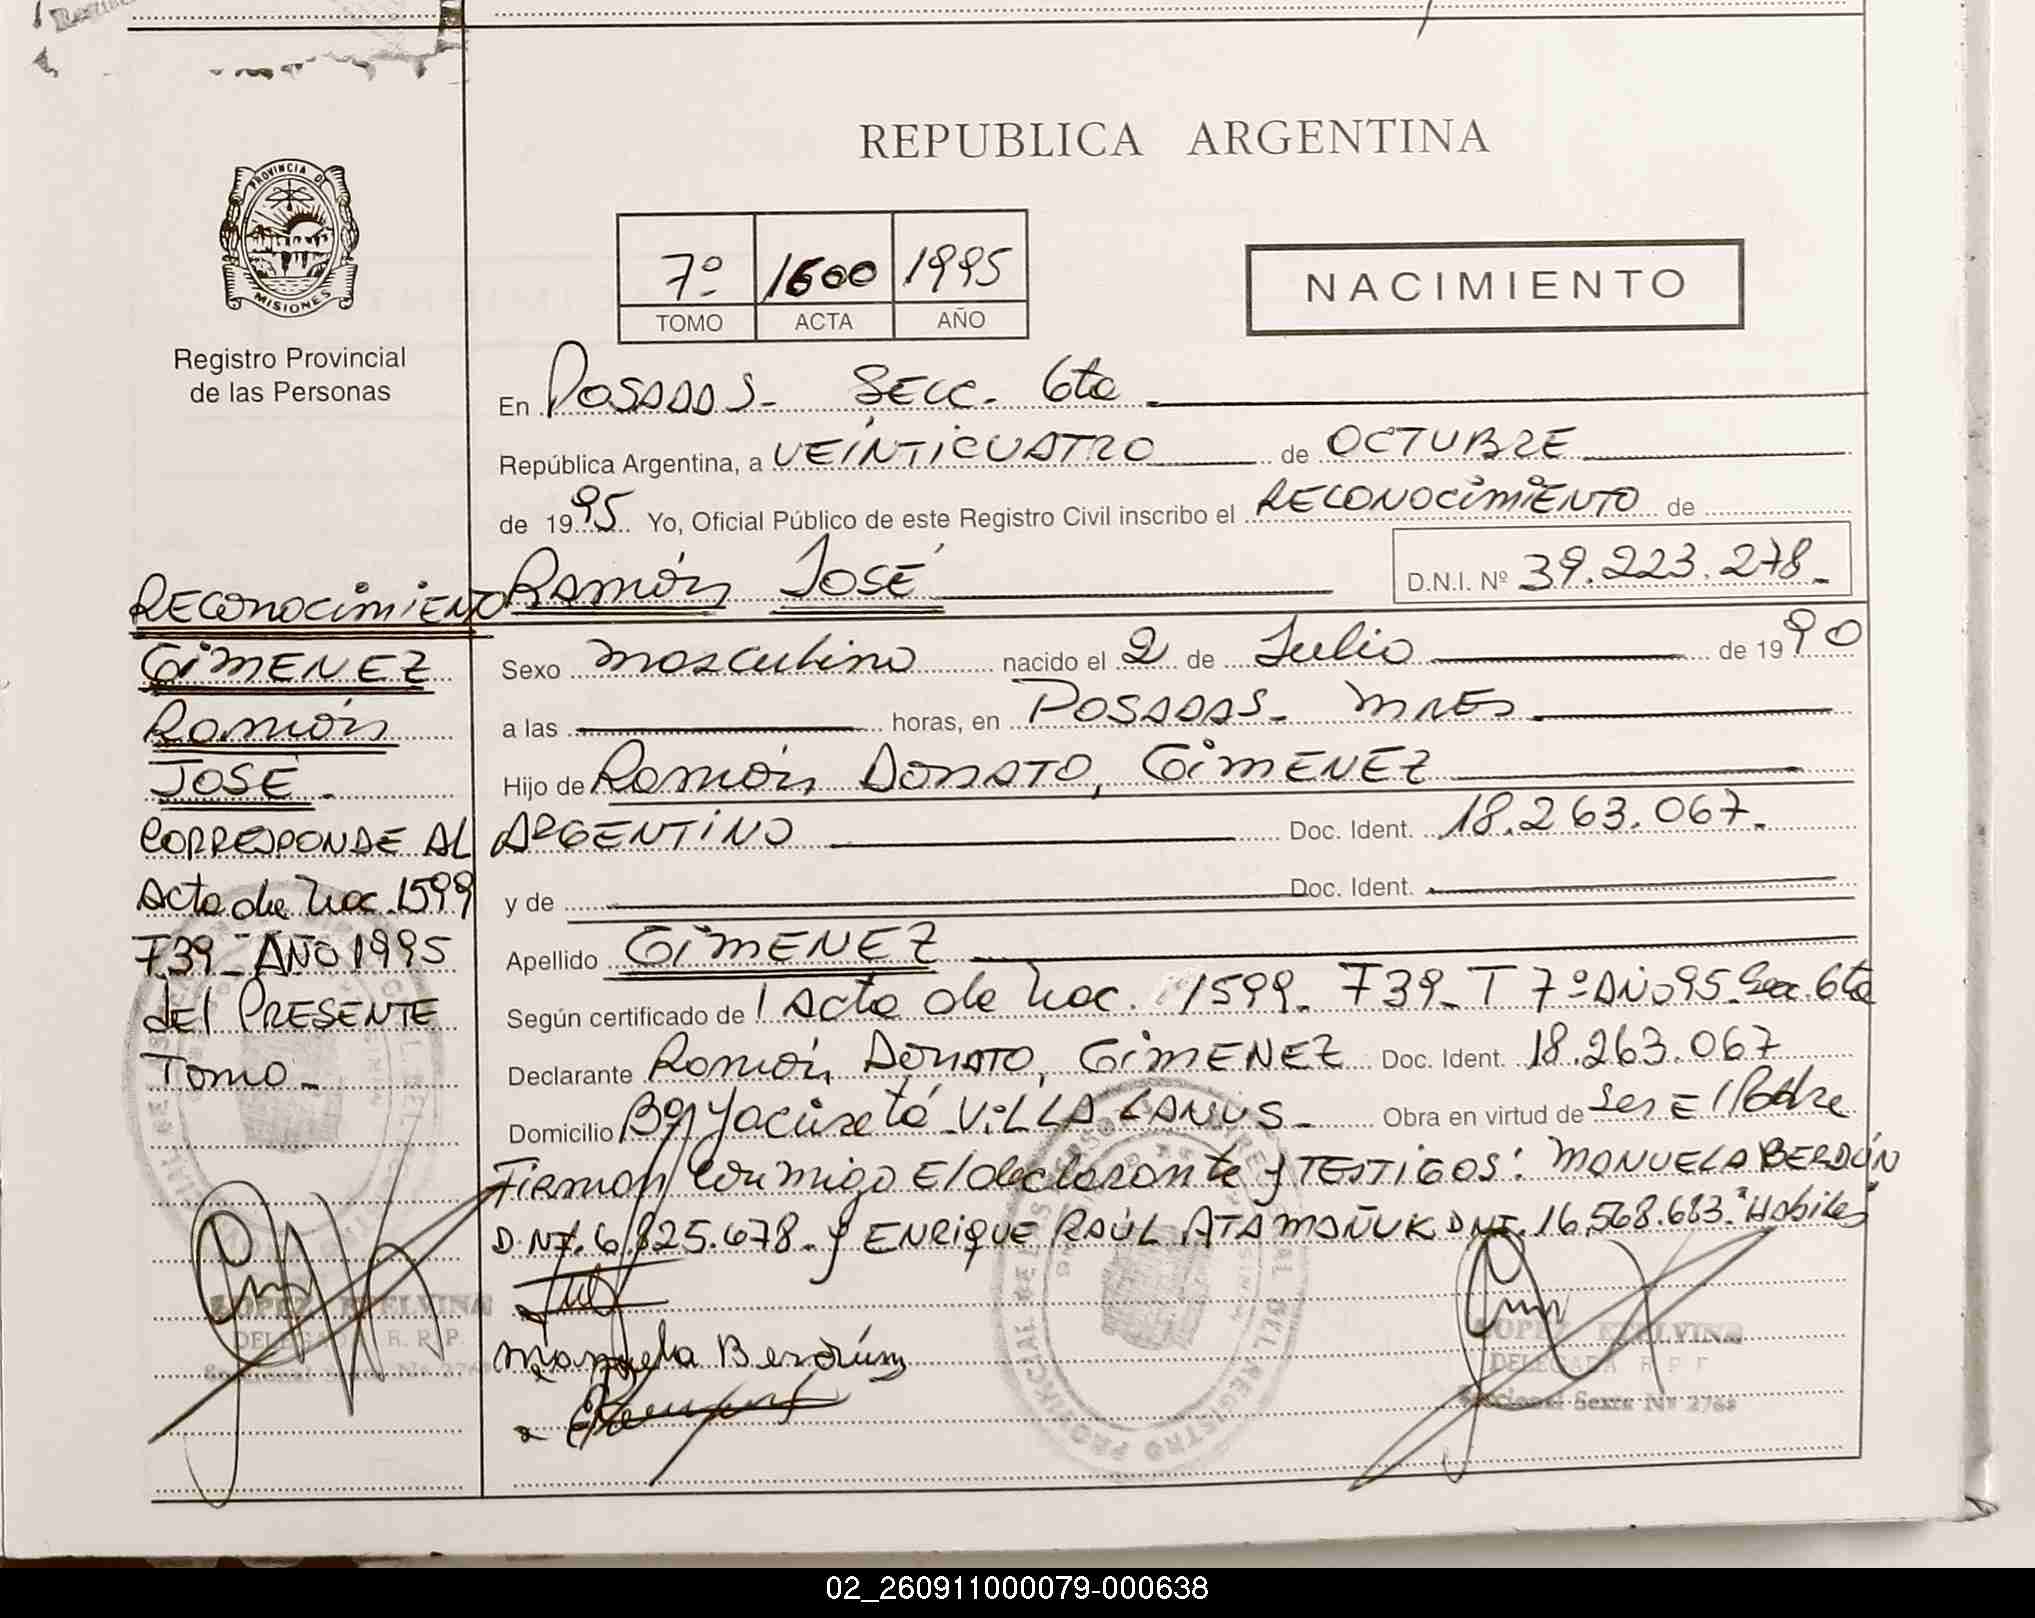 REPUBLICA ARGENTINA
PROVINCIA DE
MISIONES
Registro Provincial
de las Personas
7º 1600 1995
TOMO ACTA AÑO
NACIMIENTO
En POSADAS - SECC. 6ta
República Argentina, a VEINTICUATRO de OCTUBRE
de 1995 Yo, Oficial Público de este Registro Civil inscribo el RECONOCIMIENTO de
Ramón JOSÉ D.N.I. Nº 39.223.278.-
Sexo masculino nacido el 2 de Julio de 1990
a las horas, en POSADAS - MNES
Hijo de Ramón DONATO, GIMENEZ
ARGENTINO Doc. Ident. 18.263.067.-
y de Doc. Ident.
Apellido GIMENEZ
Según certificado de Acta de Nac. 1599 - F39 - T 7º AÑO 95 - Secc. 6ta
Declarante Ramón DONATO, GIMENEZ Doc. Ident. 18.263.067
Domicilio Bº Yacireta VILLA LANUS - Obra en virtud de Ser El Padre
Firman conmigo El declarante y TESTIGOS: MANUELA BERDÚN
D.N.I. 6.825.678 - y ENRIQUE RAÚL ATAMAÑUK DNI. 16.568.683. "Hábiles"
Manuela Berdún
LOPEZ ETELVINA
DELEGADA R.R.P.
Seccional Sexta Nº 2768
RECONOCIMIENTO
GIMENEZ
Ramón
JOSÉ.-
CORRESPONDE AL
Acta de Nac. 1599
F39 - AÑO 1995
del PRESENTE
Tomo -
LOPEZ ETELVINA
DELEGADA R.R.P.
Seccional Sexta Nº 2768
02_260911000079-000638